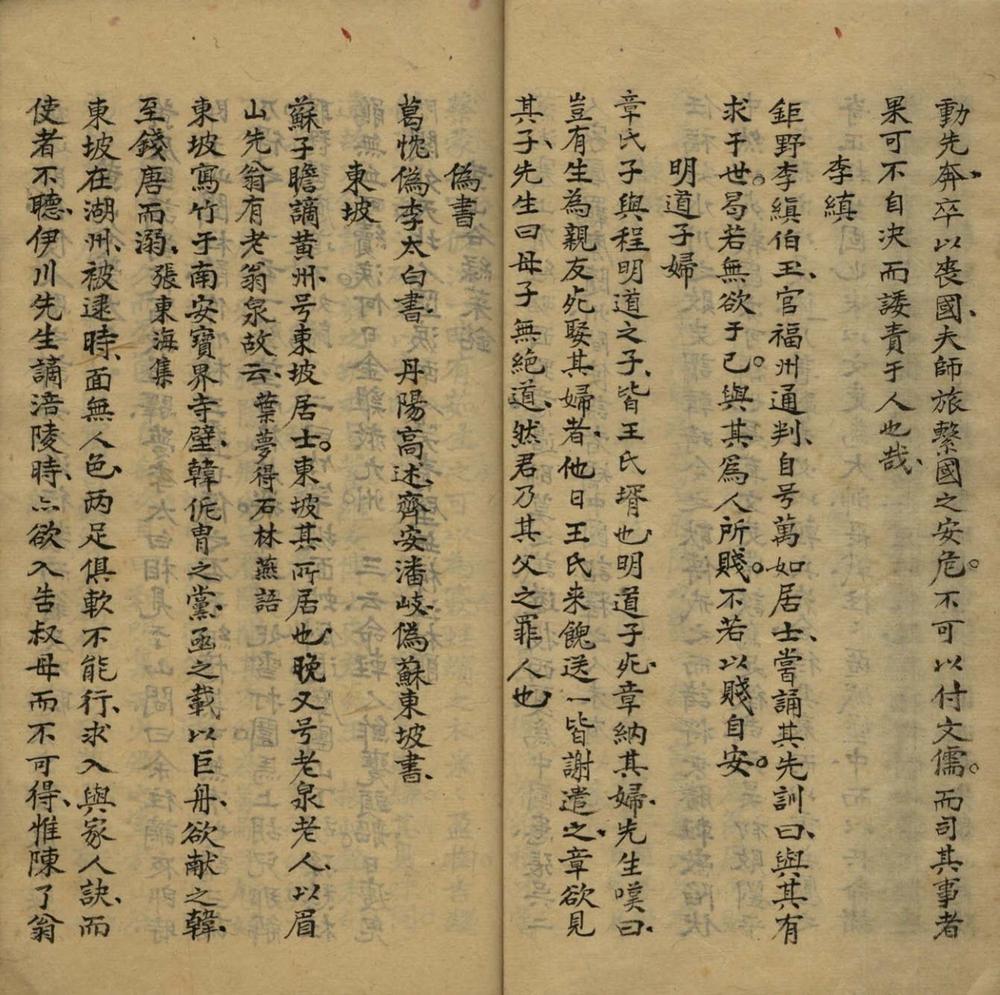 動先奔卒以喪國夫師旅繫國之安危不可以付文儒而司其事者
果可不自決而諉責于人也哉
李縝
鉅野李縝伯玉官福州通判自号萬如居士嘗誦其先訓曰與其有
求于世曷若無欲于己與其爲人所賤不若以賤自安
明道子婦
章氏子與程明道之子皆王氏壻也明道子死章納其婦先生嘆曰
豈有生為親友死娶其婦者他日王氏来餽送一皆謝遣之章欲見
其子先生曰母子無絶道然君乃其父之罪人也
偽書
葛忱偽李太白書 丹陽高述齊安潘岐偽蘇東坡書
東坡
蘇子瞻謫黄州号東坡居士東坡其所居也晚又号老泉老人以眉
山先翁有老翁泉故云葉夢得石林燕語
東坡寫竹于南安寶界寺壁韓侂胄之黨函之載以巨舟欲献之韓
至錢唐而溺張東海集
東坡在湖州被逮時面無人色两足俱軟不能行求入與家人訣而
使者不聽伊川先生謫涪陵時亦欲入告叔母而不可得惟陳了翁